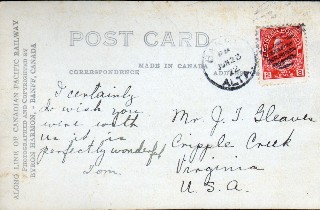 POST CARD
MADE IN CANADA
CORRESPONDENCE
ALONG LINE OF CANADIAN PACIFIC RAILWAY
PHOTOGRAPHED AND COPYRIGHTED BY
BYRON HARMON, - BANFF, CANADA
ALTA.
I certainly
do wish you
were with
us it is
perfectly wonderful
Tom.
Mr. J. T. Gleaves
Cripple Creek
Virginia
U. S. A.